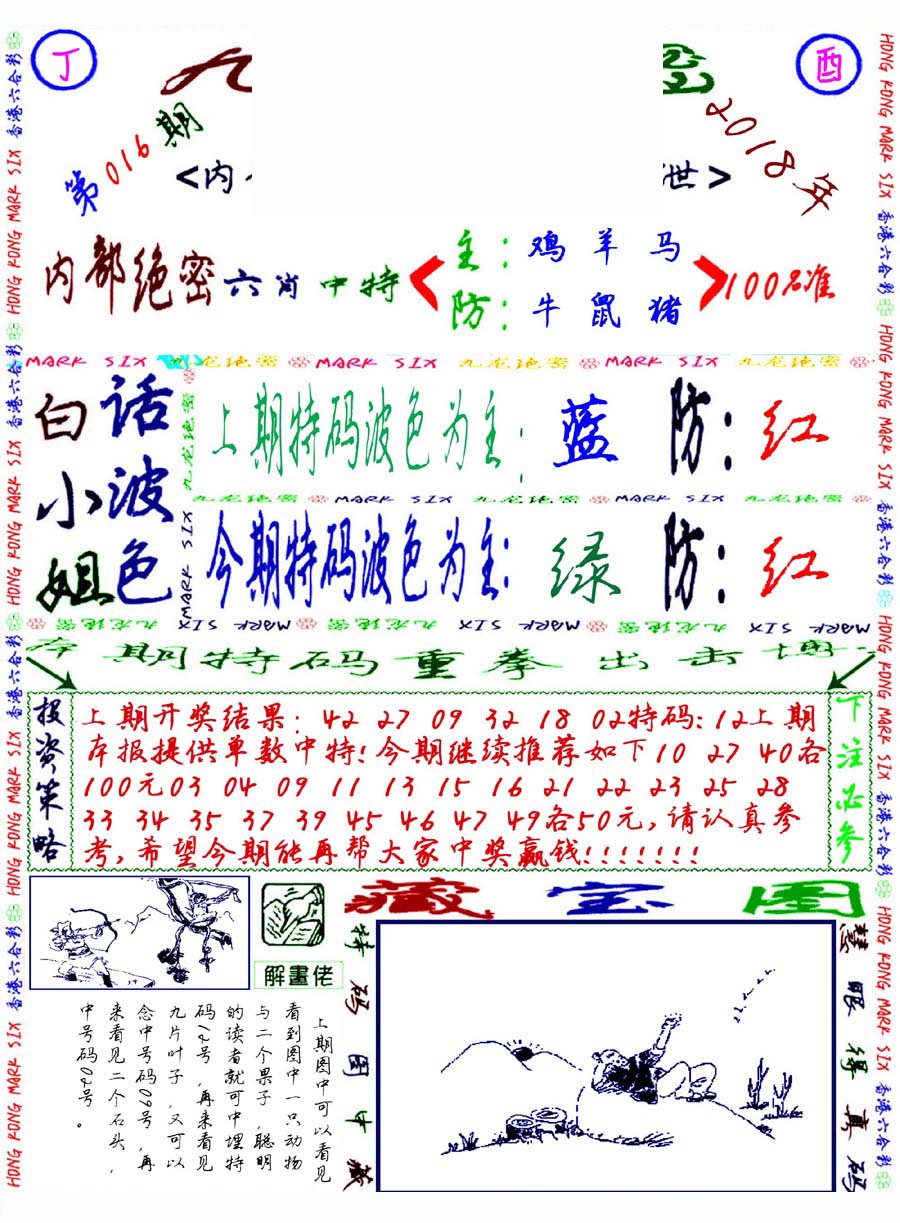 丁
酉
九
第016期
2018年
<内
世>
内部绝密六肖中特
主：鸡羊马
防：牛鼠猪
100%准
MARK SIX 九龙绝密 MARK SIX 九龙绝密 MARK SIX 九龙绝密
白话
小波
姐色
上期特码波色为主：蓝 防：红
九龙绝密 MARK SIX 九龙绝密 MARK SIX 九龙绝密
今期特码波色为主：绿 防：红
九龙绝密 MARK SIX 九龙绝密 MARK SIX 九龙绝密 MARK SIX
本期特码重拳出击博
投资策略
上期开奖结果：42 27 09 32 18 02特码：12上期
本报提供单数中特！今期继续推荐如下10 27 40各
100元03 04 09 11 13 15 16 21 22 23 25 28
33 34 35 37 39 45 46 47 49各50元，请认真参
考，希望今期能再帮大家中奖赢钱！！！！！！！
下注必参
解畫佬
上期图中可以看见
看到图中一只动物
与二个果子，聪明
的读者就可中埋特
码12号，再来看见
九片叶子，又可以
念中号码09号，再
来看见二个石头，
中号码02号。
藏宝图
特码图中藏
慧眼得真码
HONG KONG MARK SIX 香港六合彩
HONG KONG MARK SIX 香港六合彩
HONG KONG MARK SIX 香港六合彩
HONG KONG MARK SIX 香港六合彩
HONG KONG MARK SIX 香港六合彩
HONG KONG MARK SIX 香港六合彩
HONG KONG MARK SIX 香港六合彩
HONG KONG MARK SIX 香港六合彩